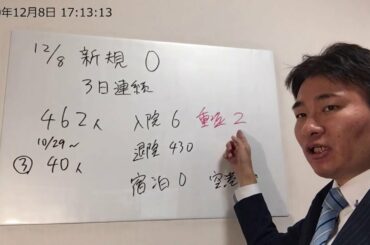 年12月8日 17:13:13
12/8 新規 0
3日連続
462人 入院 6 重症 2
10/29~ 退院 430
③ 40人
宿泊 0 空港